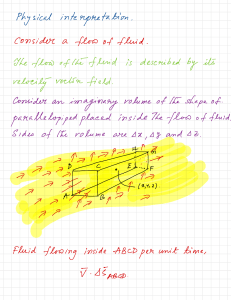 Physical interpretation.
Consider a flow of fluid.
The flow of the fluid is described by its
velocity vector field.
Consider an imaginary volume of the shape of
parallelopiped placed inside the flow of fluid
Sides of the volume are Δx, Δy and Δz.
H
D C E F
(x,y,z)
A B
Fluid flowing inside ABCD per unit time,
V · ΔS ABCD